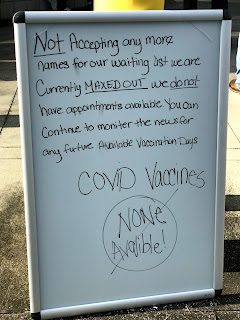 Not Accepting any more
names for our waiting list we are
Currently MAXED OUT we do not
have appointments available. You can
Continue to moniter the news for
any further Available Vaccination Days
COVID Vaccines
NONE
Avalible!